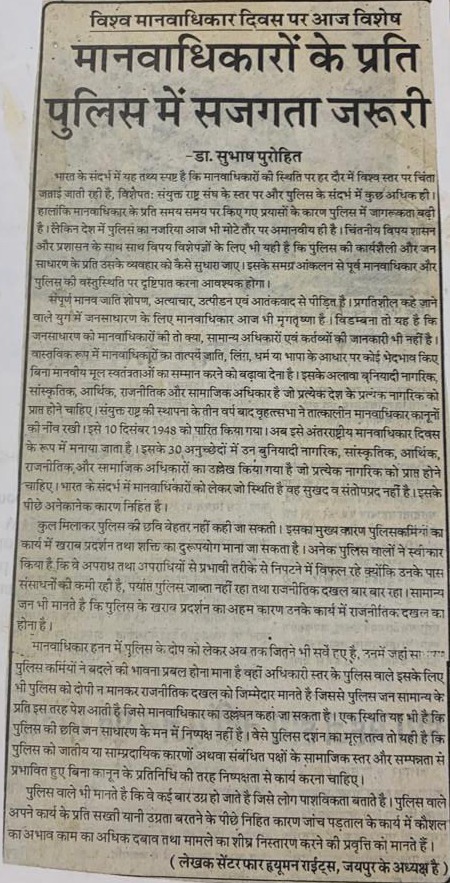 विश्व मानवाधिकार दिवस पर आज विशेष
मानवाधिकारों के प्रति
पुलिस में सजगता जरूरी
-डा. सुभाष पुरोहित
भारत के संदर्भ में यह तथ्य स्पष्ट है कि मानवाधिकारों की स्थिति पर हर दौर में विश्व स्तर पर चिंता
जताई जाती रही है, विशेषत: संयुक्त राष्ट्र संघ के स्तर पर और पुलिस के संदर्भ में कुछ अधिक ही।
हालांकि मानवाधिकार के प्रति समय समय पर किए गए प्रयासों के कारण पुलिस में जागरूकता बढ़ी
है। लेकिन देश में पुलिस का नजरिया आज भी मोटे तौर पर अमानवीय ही है। चिंतनीय विषय शासन
और प्रशासन के साथ साथ विषय विशेषज्ञों के लिए भी यही है कि पुलिस की कार्यशैली और जन
साधारण के प्रति उसके व्यवहार को कैसे सुधारा जाए। इसके समग्र आंकलन से पूर्व मानवाधिकार और
पुलिस की वस्तुस्थिति पर दृष्टिपात करना आवश्यक होगा।
संपूर्ण मानव जाति शोषण, अत्याचार, उत्पीडन एवं आतंकवाद से पीड़ित है। प्रगतिशील कहे जाने
वाले युग में जनसाधारण के लिए मानवाधिकार आज भी मृगतृष्णा है। विडम्बना तो यह है कि
जनसाधारण को मानवाधिकारों की तो क्या, सामान्य अधिकारों एवं कर्तव्यों की जानकारी भी नहीं है।
वास्तविक रूप में मानवाधिकारों का तात्पर्य जाति, लिंग, धर्म या भाषा के आधार पर कोई भेदभाव किए
बिना मानवीय मूल स्वतंत्रताओं का सम्मान करने को बढ़ावा देना है। इसके अलावा बुनियादी नागरिक,
सांस्कृतिक, आर्थिक, राजनीतिक और सामाजिक अधिकार है जो प्रत्येक देश के प्रत्येक नागरिक को
प्राप्त होने चाहिए। संयुक्त राष्ट्र की स्थापना के तीन वर्ष बाद वृहत्तसभा ने तात्कालीन मानवाधिकार कानूनों
की नींव रखी। इसे 10 दिसंबर 1948 को पारित किया गया। अब इसे अंतरराष्ट्रीय मानवाधिकार दिवस
के रूप में मनाया जाता है। इसके 30 अनुच्छेदों में उन बुनियादी नागरिक, सांस्कृतिक, आर्थिक,
राजनीतिक और सामाजिक अधिकारों का उल्लेख किया गया है जो प्रत्येक नागरिक को प्राप्त होने
चाहिए। भारत के संदर्भ में मानवाधिकारों को लेकर जो स्थिति है वह सुखद व संतोषप्रद नहीं है। इसके
पीछे अनेकानेक कारण निहित है।
कुल मिलाकर पुलिस की छवि बेहतर नहीं कही जा सकती। इसका मुख्य कारण पुलिसकर्मियों का
कार्य में खराब प्रदर्शन तथा शक्ति का दुरूपयोग माना जा सकता है। अनेक पुलिस वालों ने स्वीकार
किया है, कि वे अपराध तथा अपराधियों से प्रभावी तरीके से निपटने में विफल रहे क्योंकि उनके पास
संसाधनों की कमी रही है, पर्याप्त पुलिस जाब्ता नहीं रहा तथा राजनीतिक दखल बार बार रहा। सामान्य
जन भी मानते है कि पुलिस के खराब प्रदर्शन का अहम कारण उनके कार्य में राजनीतिक दखल का
होना है।
मानवाधिकार हनन में पुलिस के दोष को लेकर अब तक जितने भी सर्वे हुए है, उनमें जहां
पुलिस कर्मियों ने बदले की भावना प्रबल होना माना है वहीं अधिकारी स्तर के पुलिस वाले इसके लिए
भी पुलिस को दोषी न मानकर राजनीतिक दखल को जिम्मेदार मानते है जिससे पुलिस जन सामान्य के
प्रति इस तरह पेश आती है जिसे मानवाधिकार का उल्लंघन कहा जा सकता है। एक स्थिति यह भी है कि
पुलिस की छवि जन साधारण के मन में निष्पक्ष नहीं है। वैसे पुलिस दर्शन का मूल तत्व तो यही है कि
पुलिस को जातीय या साम्प्रदायिक कारणों अथवा संबंधित पक्षों के सामाजिक स्तर और सम्पन्नता से
प्रभावित हुए बिना कानून के प्रतिनिधि की तरह निष्पक्षता से कार्य करना चाहिए।
पुलिस वाले भी मानते है कि वे कई बार उग्र हो जाते है जिसे लोग पाशविकता बताते है। पुलिस वाले
अपने कार्य के प्रति सख्ती यानी उग्रता बरतने के पीछे निहित कारण जांच पड़ताल के कार्य में कौशल
का अभाव काम का अधिक दबाव तथा मामले का शीघ्र निस्तारण करने की प्रवृत्ति को मानते हैं।
( लेखक सेंटर फार ह्यूमन राईट्स, जयपुर के अध्यक्ष है )